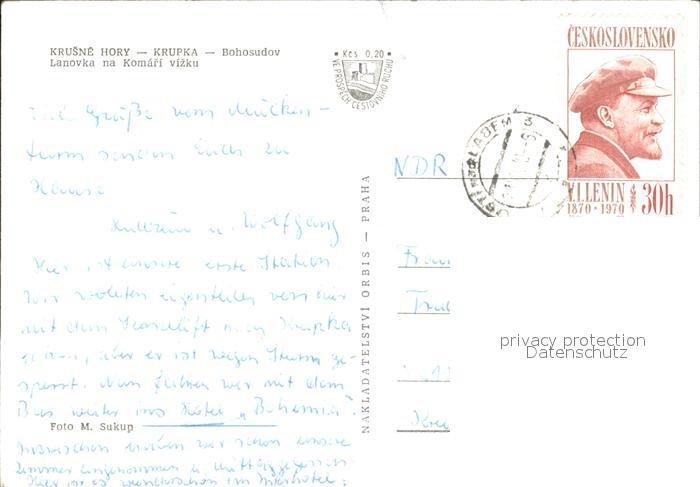 KRUŠNÉ HORY — KRUPKA — Bohosudov
Lanovka na Komáří vížku
• Kčs 0,20 •
VE PROSPĚCH CESTOVNÍHO RUCHU
ČESKOSLOVENSKO
V.I. LENIN 30h
1870 · 1970
ÚSTÍ LABEM 3
Grüße vom Mücken-
turm senden Euch zu
Hause
u. Wolfgang
Hier ist unsere erste Station.
Wir wollten eigentlich von hier
mit dem Sessellift nach Krupka
aber er ist wegen Sturm ge-
sperrt. Nun fahren wir mit dem
Bus weiter ins Hotel „Bohemia".
Foto M. Sukup
Inzwischen haben wir schon unsere
Zimmer eingenommen u. mittaggegessen.
Hier ist es wunderschön im Interhotel.
NAKLADATELSTVÍ ORBIS — PRAHA
NDR
privacy protection
Datenschutz